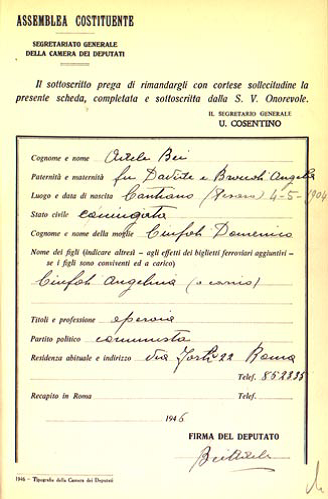 ASSEMBLEA COSTITUENTE
SEGRETARIATO GENERALE
DELLA CAMERA DEI DEPUTATI
Il sottoscritto prega di rimandargli con cortese sollecitudine la
presente scheda, completata e sottoscritta dalla S. V. Onorevole.
IL SEGRETARIO GENERALE
U. COSENTINO
Cognome e nome Adele Bei
Paternità e maternità fu Davide e Broccoli Angela
Luogo e data di nascita Cantiano (Pesaro) 4-5-1904
Stato civile coniugata
Cognome e nome della moglie Ciufoli Domenico
Nome dei figli (indicare altresì - agli effetti dei biglietti ferroviari aggiuntivi -
se i figli sono conviventi ed a carico)
Ciufoli Angelina (a carico)
Titoli e professione operaia
Partito politico comunista
Residenza abituale e indirizzo via 22 Roma
Telef. 852335
Recapito in Roma Telef.
1946
FIRMA DEL DEPUTATO
Bei Adele
1946 - Tipografia della Camera dei Deputati